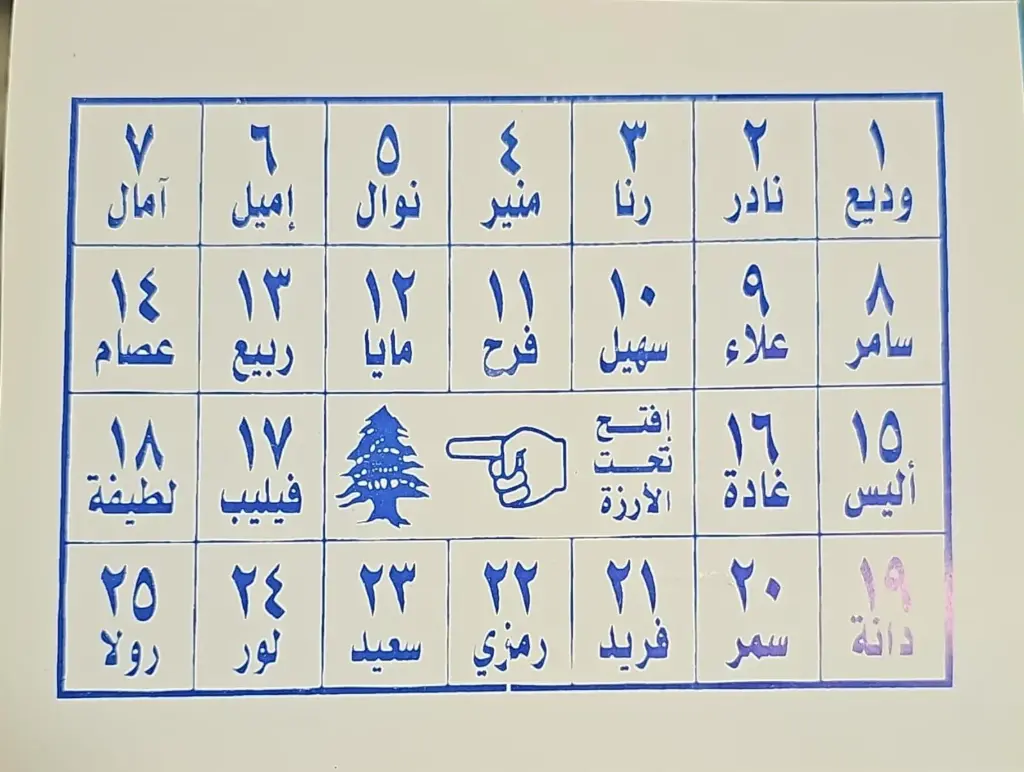 ١ ٢ ٣ ٤ ٥ ٦ ٧
وديع نادر رنا منير نوال إميل آمال
٨ ٩ ١٠ ١١ ١٢ ١٣ ١٤
سامر علاء سهيل فرح مايا ربيع عصام
١٥ ١٦ إفتح تحت الأرزة ١٧ ١٨
أليس غادة فيليب لطيفة
١٩ ٢٠ ٢١ ٢٢ ٢٣ ٢٤ ٢٥
دانة سمر فريد رمزي سعيد لور رولا